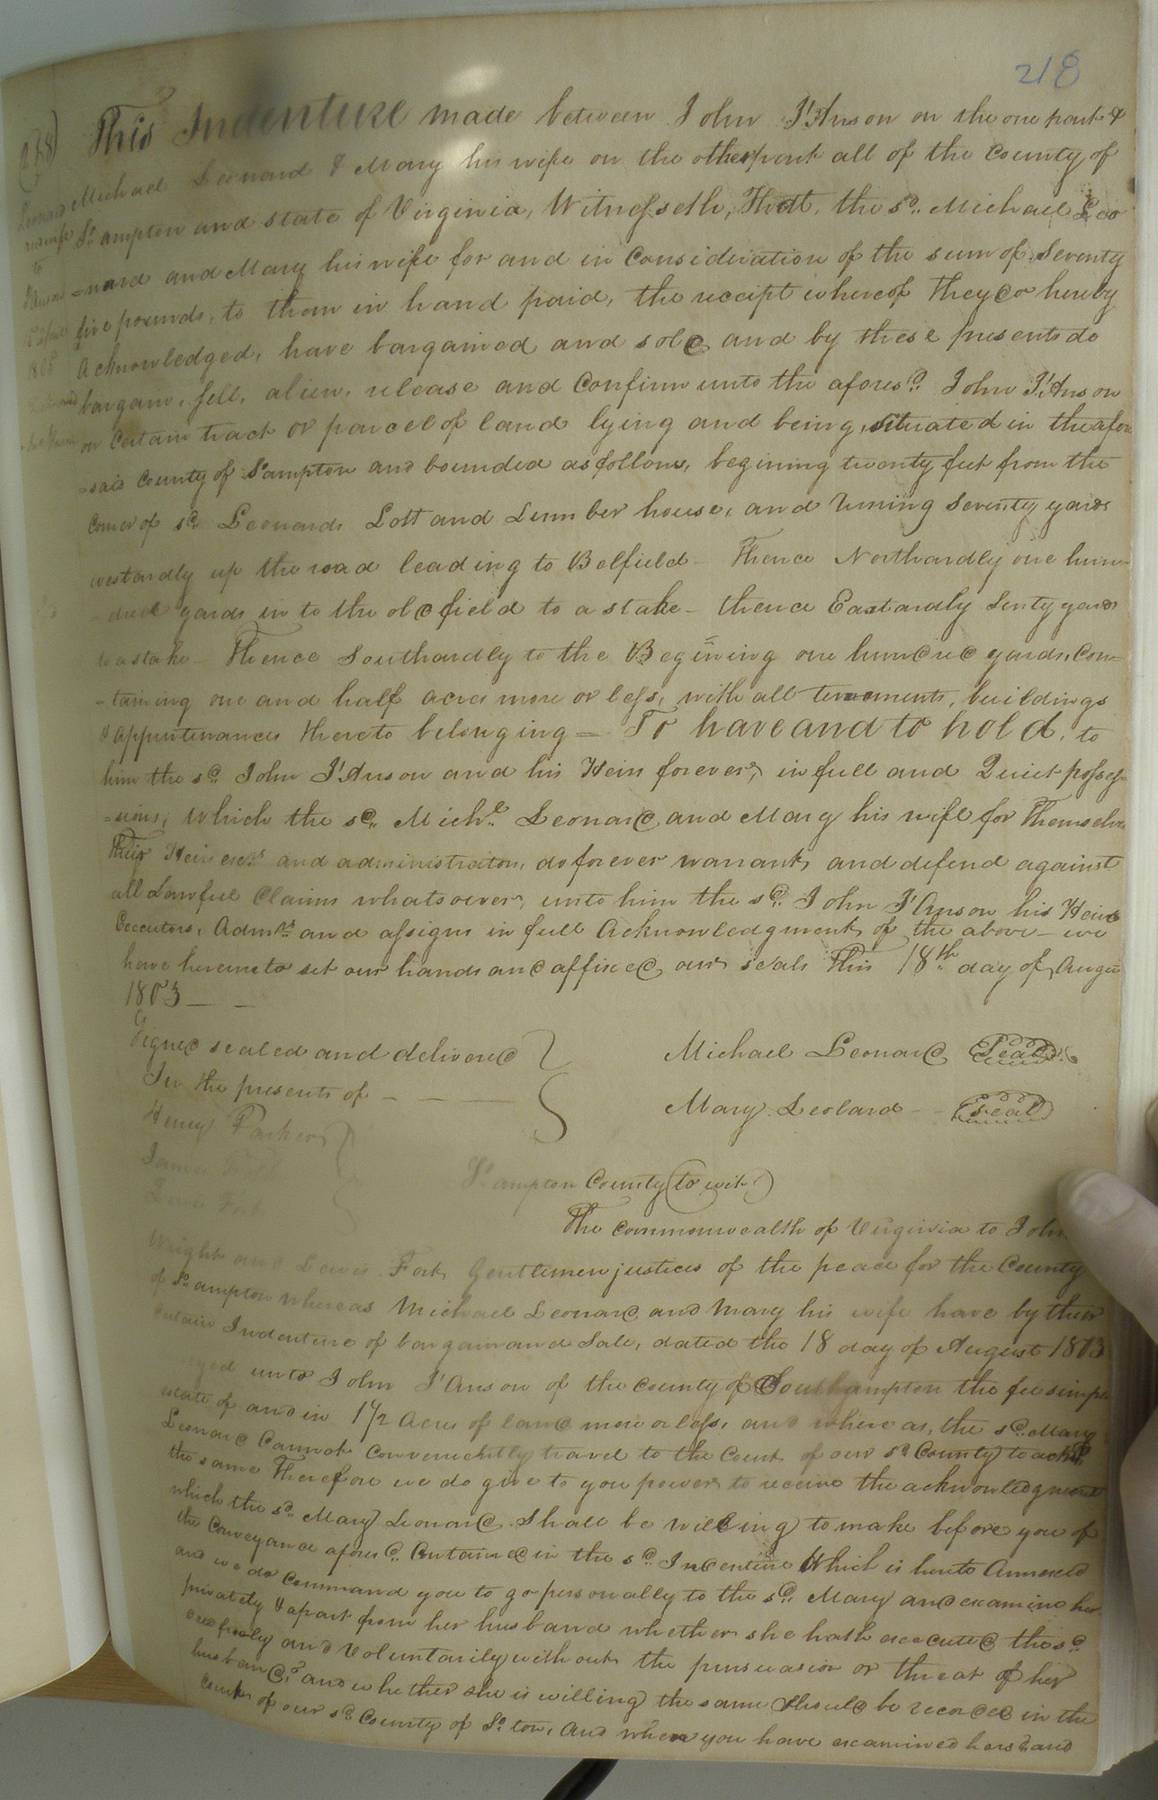 218
This Indenture made between John I'Anson on the one part &
Michael Leonard & Mary his wife on the other part all of the County of
So ampton and state of Virginia, Witnesseth, That, the sd. Michael Leo
=nard and Mary his wife for and in Consideration of the sum of Seventy
five pounds, to them in hand paid, the receipt whereof they do hereby
Acknowledged, have bargained and sold and by these presents do
bargain, sell, alien, release and Confirm unto the aforesd. John I'Anson
on Certain track or parcel of land lying and being, situated in the afore
=said County of So ampton and bounded as follows, begining twenty feet from the
Corner of sd Leonards Lott and Lumber house, and runing Seventy yards
westardly up the road leading to Belfield - Thence Northardly one hun-
-dred yards in to the old field to a stake - thence Eastardly Senty yards
to a stake - Thence Southardly to the Begining one hundred yards, Con-
-taining one and half acres more or less, with all tenements, buildings
& appurtenances thereto belonging = To have and to hold, to
him the sd. John I'Anson and his Heirs forever, in full and Quiet posses-
=sions, which the sd. Michl. Leonard and Mary his wife for themselves
their Heirs exrs and administrators, do forever warrant, and defend against
all Lawfull Claims whatsoever, unto him the sd. John I'Anson his Heirs
Executors, Admrs and assigns in full Acknowledgment of the above - we
have hereunto set our hands and affixed our seals this 18th day of Augu
1803 - -
Signed sealed and delivered
In the presents of - - -
Michael Leonard Seal
Mary Leolard - - Seal
Henry Parker
James
Lewis Fort
So ampton County (to wit)
The commonwealth of Virginia to John
Wright and Lewis Fort, Gentlemen justices of the peace for the County
of So ampton whereas Michael Leonard and Mary his wife have by their
Certain Indenture of bargain and Sale, dated the 18 day of August 1803
unto John I'Anson of the County of Southampton the fee simple
estate of and in 1 1/2 Acres of land more or less, and where as, the sd. Mary
Leonard Cannot conveniently travel to the Court of our sd County to
the same Therefore we do give to you power to receive the acknowledgment
which the sd. Mary Leonard shall be willing to make before you of
the Conveyance aforesd. Contained in the sd. Indenture Which is hereto Annexed
and we do command you to go personally to the sd. Mary and examine her
privately & apart from her husband whether she hath executed the sd
freely and Voluntarily with out the persuasion or threat of her
husband? and whether she is willing the same should be recorded in the
Court of our sd County of So ton, And when you have examined her and